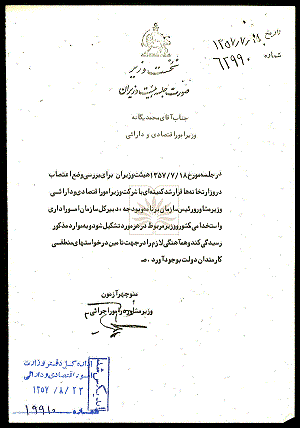 تاریخ ۱۳۵۷/۷/
شماره ۶۲۹۹۰
نخست وزیر
صورت جلسه هیئت وزیران
جناب آقای محمد یگانه
وزیر امور اقتصادی و دارائی
در جلسه مورخ ۱۳۵۷/۷/۱۸ هیئت وزیران برای بررسی وضع اعتصاب
در وزارتخانه‌ها قرار شد کمیته‌ای با شرکت وزیر امور اقتصادی و دارائی
وزیر مشاور و رئیس سازمان برنامه و بودجه ، دبیر کل سازمان امور اداری
و استخدامی کشور و وزیر مربوط در هر مورد تشکیل شود و به موارد مذکور
رسیدگی کند و هماهنگی لازم را در جهت تامین درخواستهای منطقی
کارمندان دولت بوجود آورد . ص
منوچهر آزمون
وزیر مشاور در امور اجرائی
اداره کل دفتر وزارت
امور اقتصادی و دارائی
۱۳۵۷ /۸/ ۲۳
شماره ۱۹۹۱۰